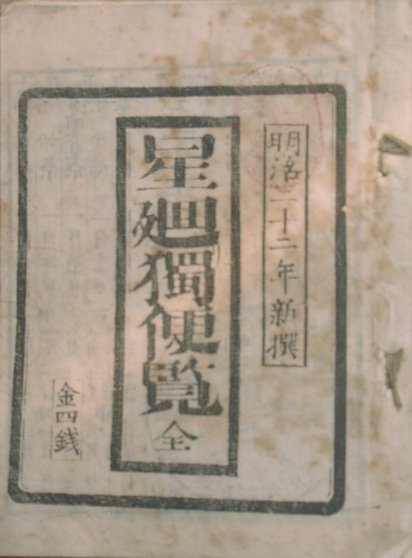 明治二十二年新撰
星廻獨便覧 全
金四銭